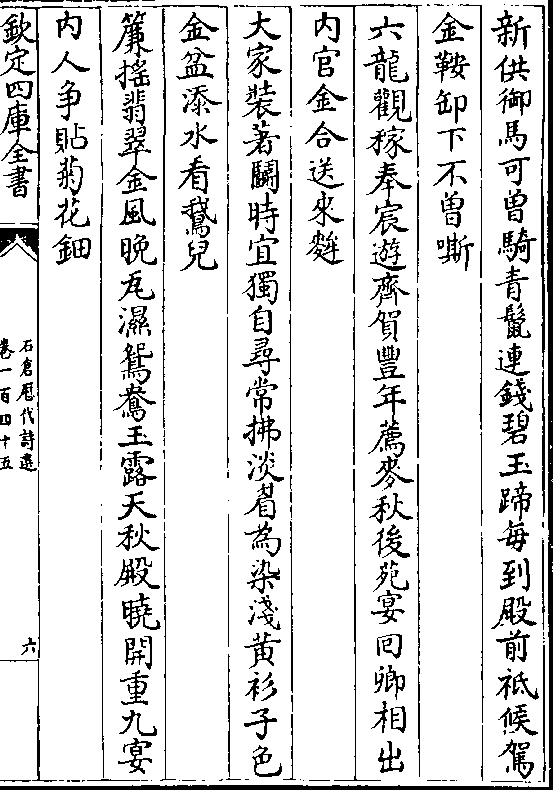 新供御馬可曾騎青鬛連錢碧玉蹄每到殿前祗候駕
金鞍卸下不曾嘶
六龍觀稼奉宸遊齊賀豐年薦麥秋後苑宴回卿相出
内官金合送來麰
大家裝著鬭時宜獨自尋常拂淡眉為染淺黄衫子色
金盆添水看鵞兒
簾揺翡翠金風晚瓦濕鴛鴦玉露天秋殿曉開重九宴
内人争貼菊花鈿
欽定四庫全書
石倉歴代詩選
卷一百四十五
六